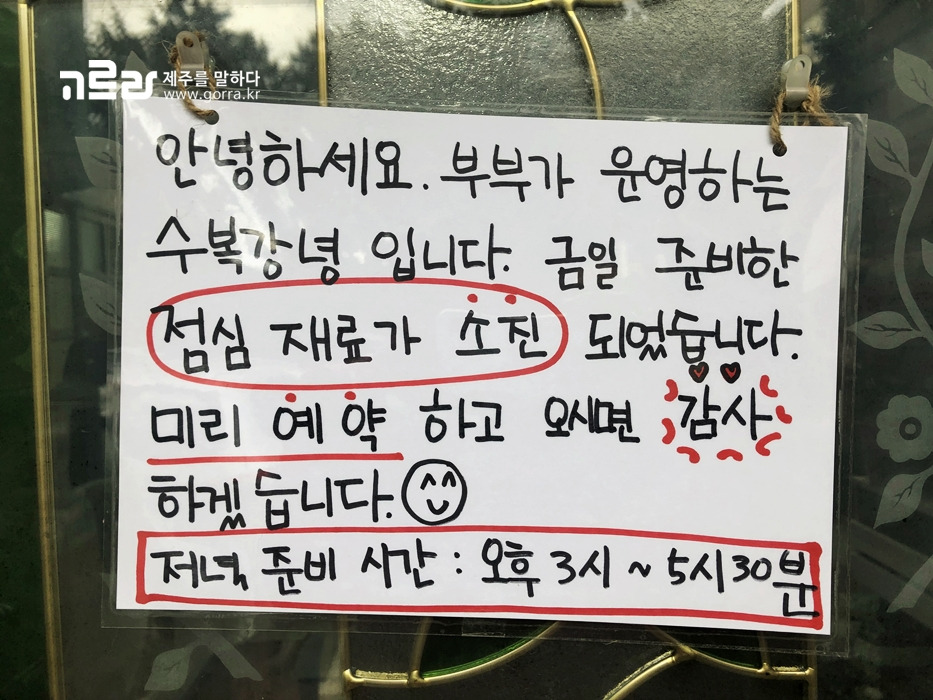 고르라 제주를 말하다
www.gorra.kr
안녕하세요. 부부가 운영하는
수복강녕 입니다. 금일 준비한
점심 재료가 소진 되었습니다.
미리 예약 하고 오시면 감사
하겠습니다.
저녁 준비 시간 : 오후 3시 ~ 5시30분